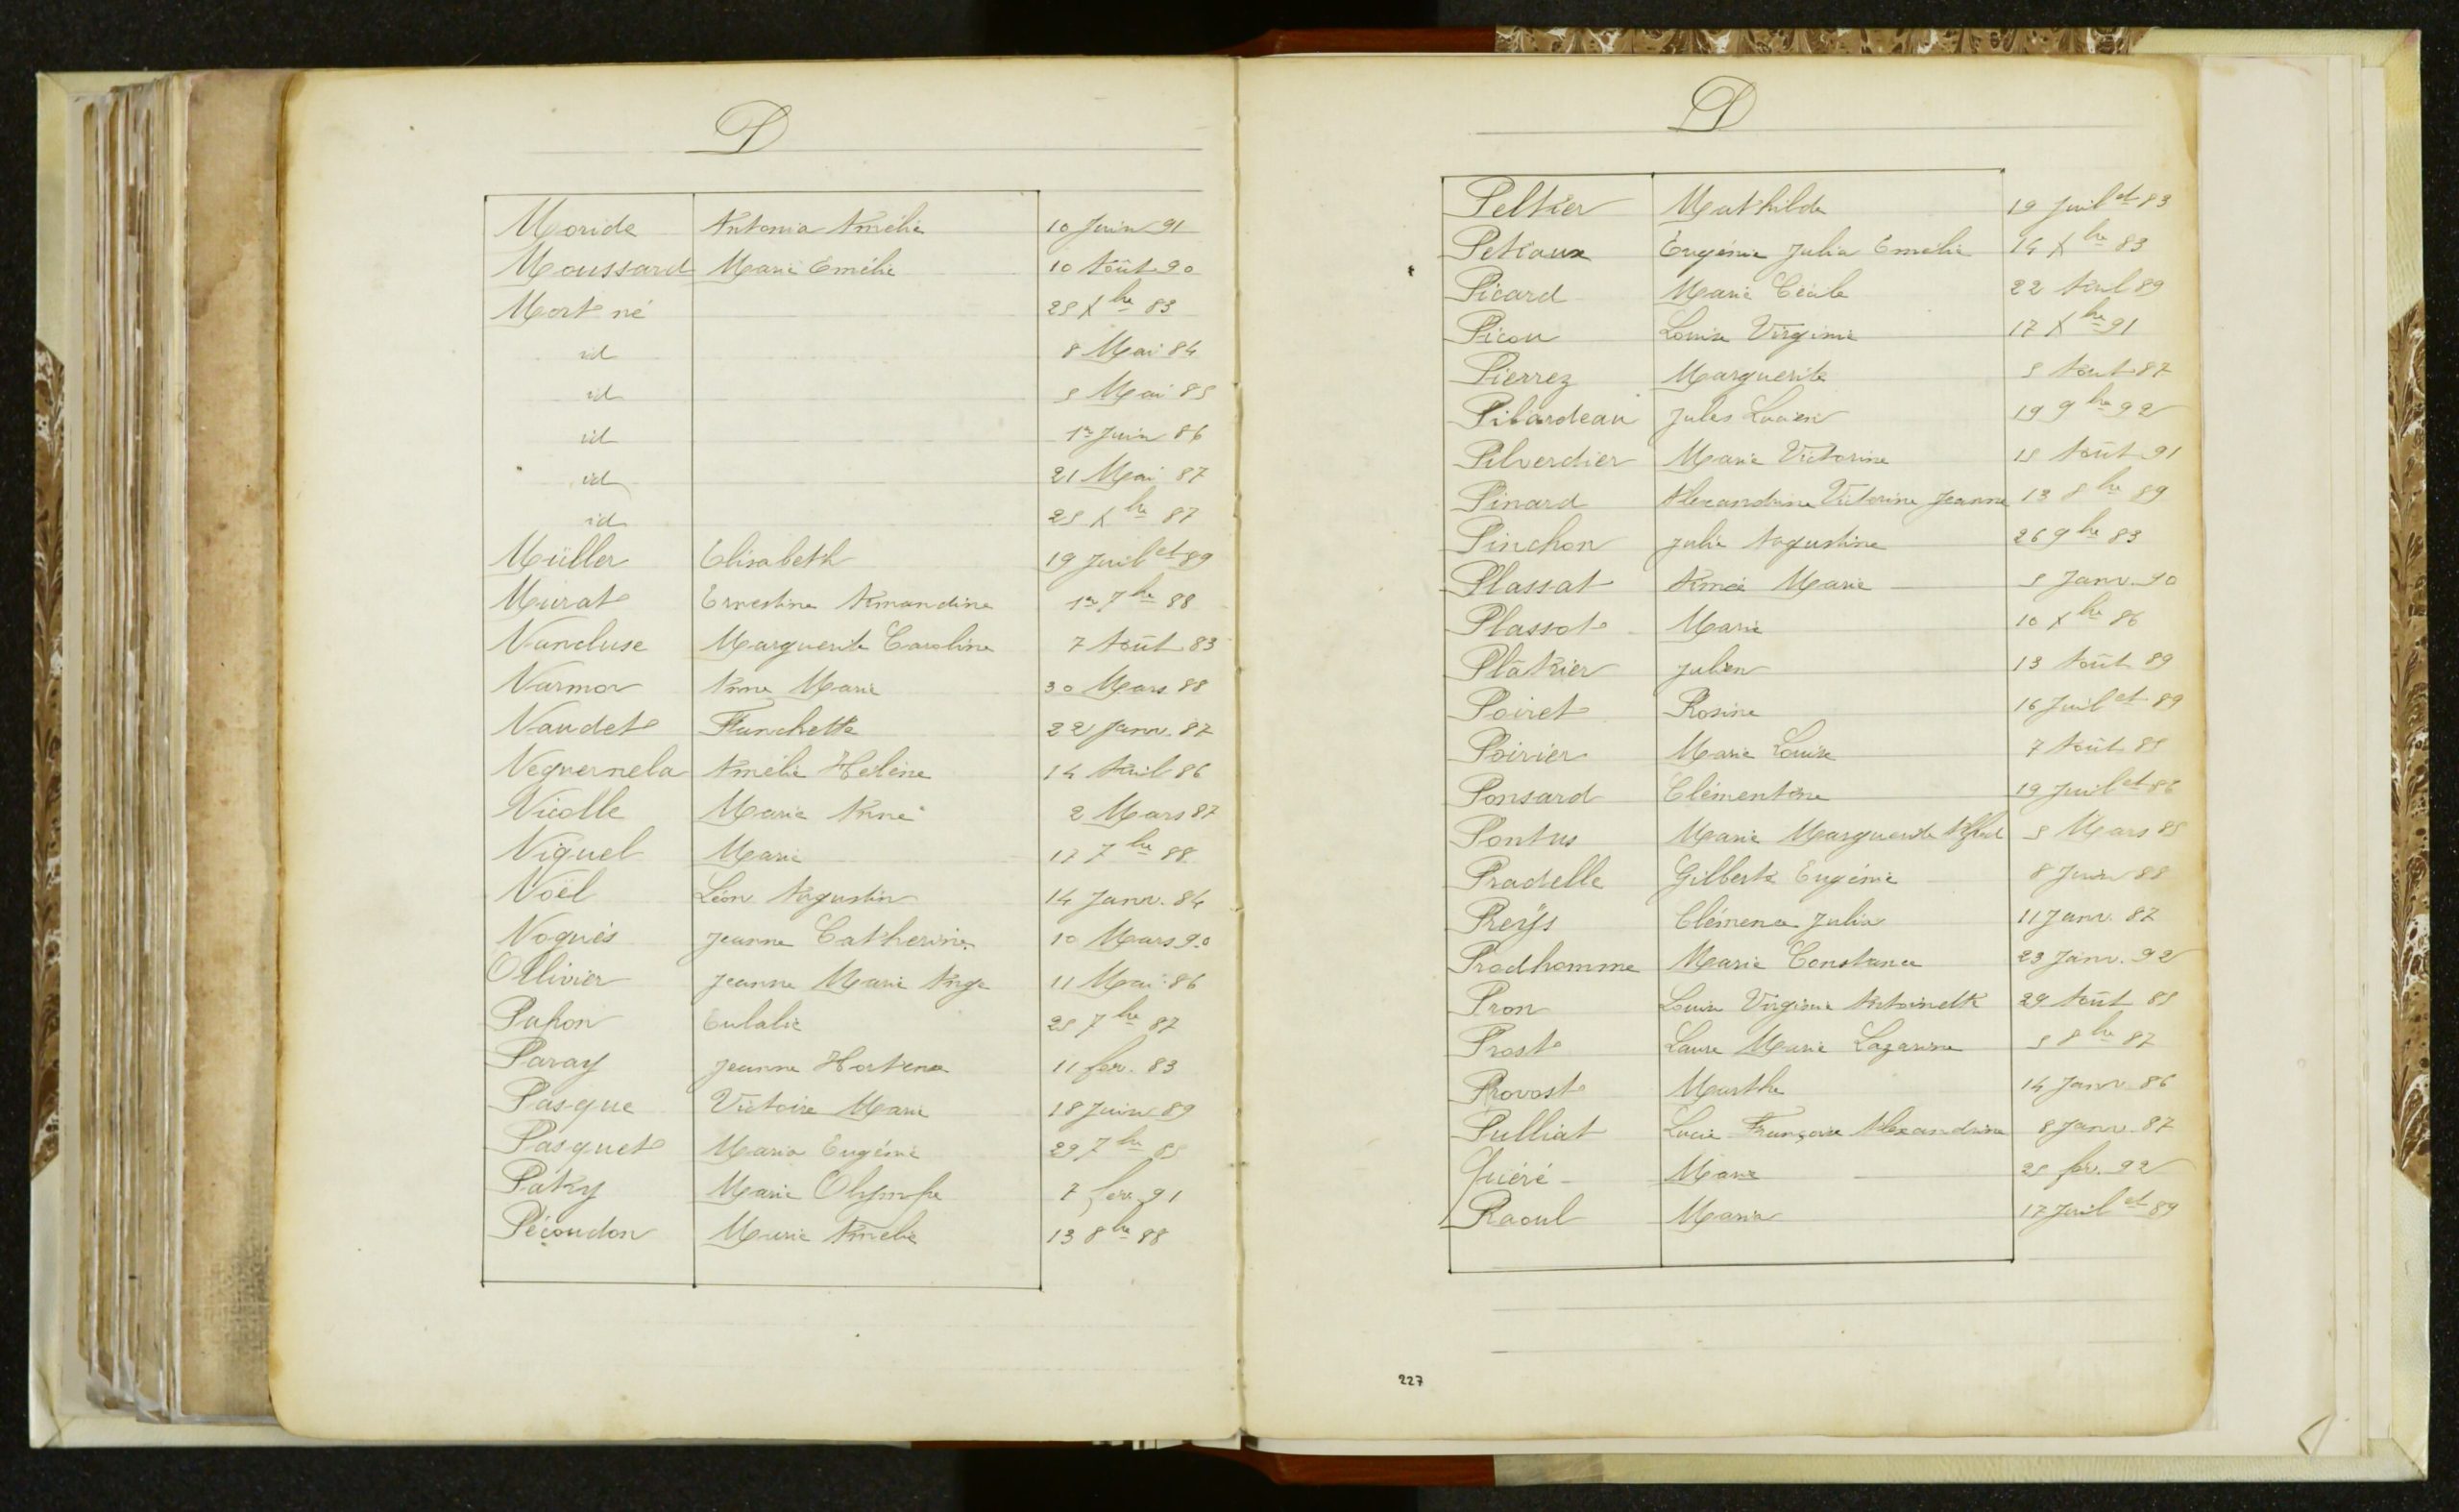 D
Moride Antonia Amélie 10 Juin 91
Moussard Marie Emélie 10 Août 90
Mort né 25 Xbre 83
id 8 Mai 84
id 5 Mai 85
id 1er Juin 86
id 21 Mai 87
id 25 Xbre 87
Müller Elisabeth 19 Juillet 89
Murat Ernestine Amandine 1er 7bre 88
Nancluse Marguerite Caroline 7 Août 83
Narmor Anne Marie 30 Mars 88
Naudet Fanchette 22 Janv. 87
Neguernela Amélie Hélène 14 Avril 86
Nicolle Marie Anne 2 Mars 87
Niquel Marie 17 7bre 88
Noël Léon Augustin 14 Janv. 84
Noguès Jeanne Catherine 10 Mars 90
Ollivier Jeanne Marie Ange 11 Mai 86
Papon Eulalie 25 7bre 87
Paray Jeanne Hortence 11 fév. 83
Pasque Victoire Marie 18 Juin 89
Pasquet Maria Eugénie 29 7bre 85
Patry Marie Olympe 7 fév. 91
Péçoudon Marie Amélie 13 8bre 88
D
Peltier Mathilde 19 Juillet 83
Petiaux Eugénie Julia Emélie 14 Xbre 83
Picard Marie Cécile 22 Avril 89
Picou Louise Virginie 17 Xbre 91
Pierrez Marguerite 5 Août 87
Pilardeau Jules Lucien 19 9bre 92
Pilverdier Marie Victorine 15 Août 91
Pinard Alexandrine Victorine Jeanne 13 8bre 89
Pinchon Julie Augustine 26 9bre 83
Plassat Aimée Marie 5 Janv. 90
Plassot Marie 10 Xbre 86
Plâtrier Julien 13 Août 89
Poiret Rosine 16 Juillet 89
Poirier Marie Louise 7 Août 85
Ponsard Clémentine 19 Juillet 86
Pontus Marie Marguerite 5 Mars 85
Pradelle Gilberte Eugénie 8 Juin 88
Preÿs Clémence Julia 11 Janv. 87
Prodhomme Marie Constance 23 Janv. 92
Pron Louise Virginie Antoinette 29 Août 85
Prost Laure Marie Lazarine 5 8bre 87
Provost Marthe 14 Janv. 86
Pulliat Lucie Françoise Alexandrine 8 Janv. 87
Quéré Marie 25 fév. 92
Raoul Maria 17 Juillet 89
227